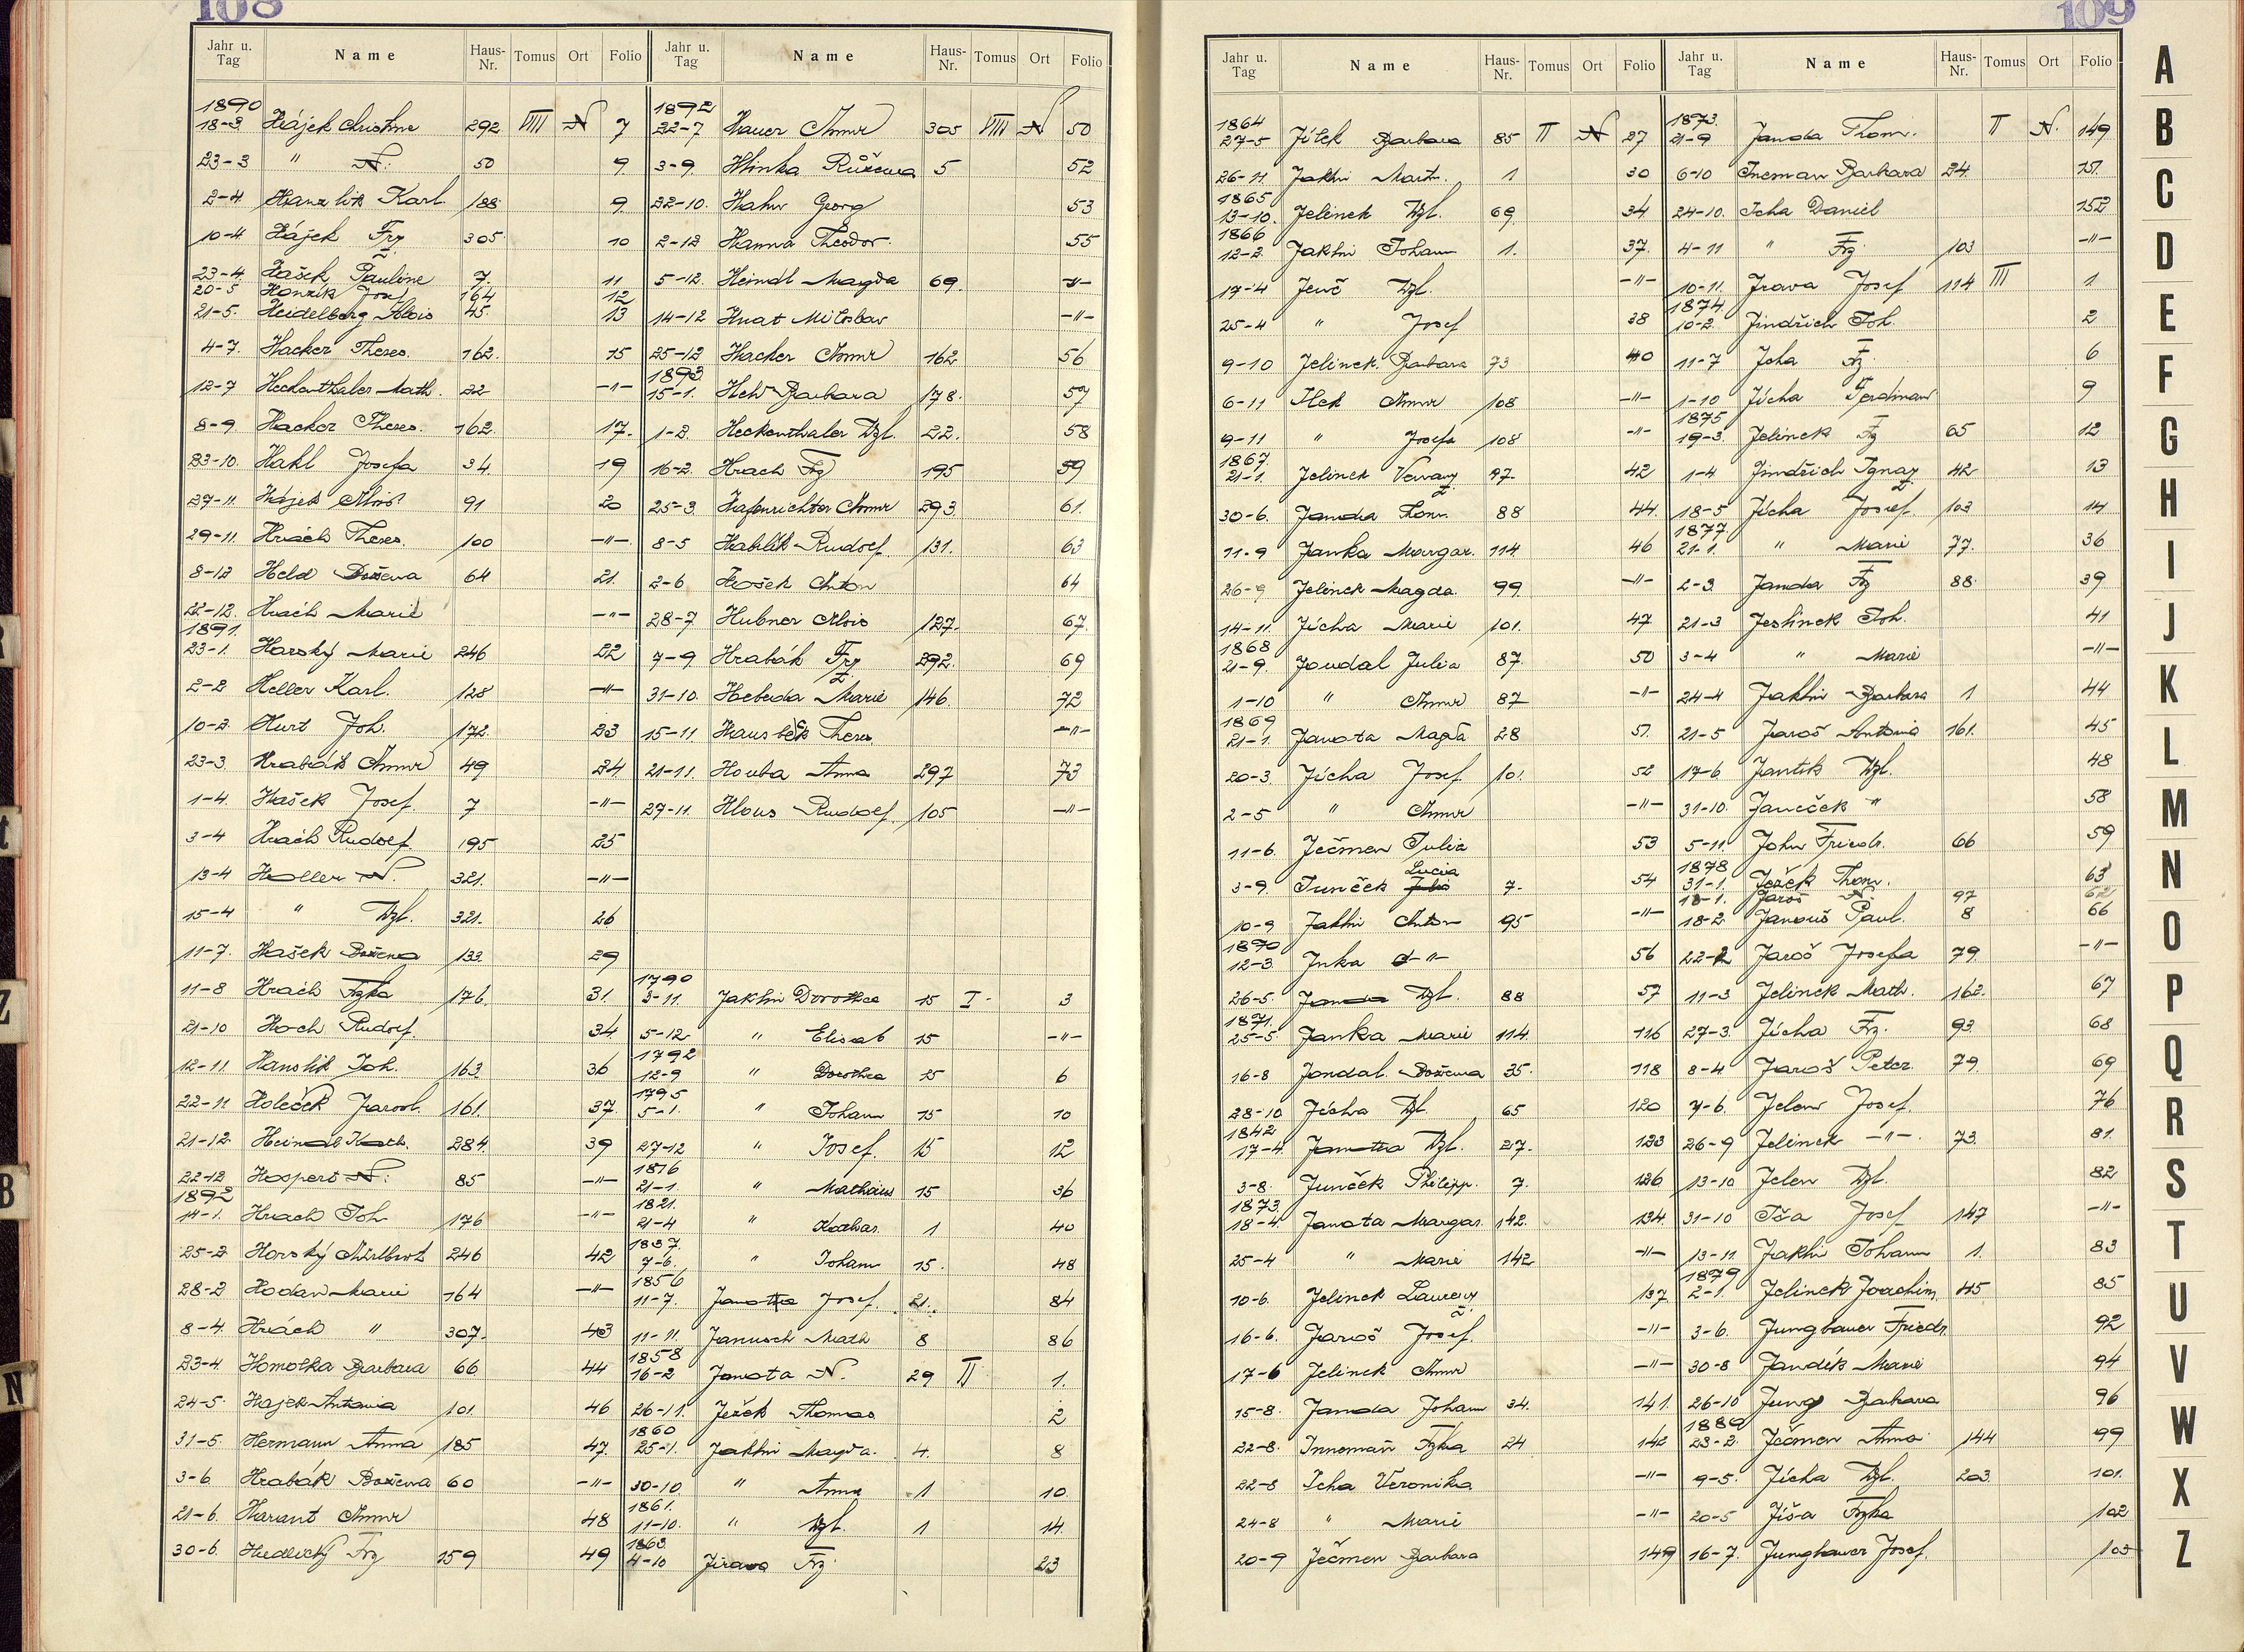 108
Jahr u. Tag Name Haus-Nr. Tomus Ort Folio
1890
18-3. Hájek Christine 292 VIII N 7
23-3 " N. 50 9.
2-4. Hanzlik Karl. 188 9.
10-4. Hájek Frz. 305 10
23-4. Hašek Pauline 7. 11
20-5 Honzik Josef 164 12
21-5. Heidelberg Alois 45. 13
4-7. Hacker Theres. 162. 15
12-7 Heckenthaler Math. 22 -"-
8-9. Hacker Theres. 162. 17.
23-10. Hakl Josefa 34. 19
27-11 Hájek Alois 91 20
29-11. Hrách Theres. 100 -"-
8-12 Held Božena 64 21.
22-12. Hrách Marie -"-
1891.
23-1. Harský Marie 246 22
2-2 Heller Karl. 128 -"-
10-2. Hurt Joh. 172. 23
23-3. Hrabák Anna 49 24
1-4. Hašek Josef. 7 -"-
3-4 Hrách Rudolf. 195 25
13-4 Holler N. 321. -"-
15-4 " Wzl. 321. 26
11-7. Hašek Božena 133. 29
11-8 Hrách Frzka 176. 31.
21-10 Hoch Rudolf. 34.
12-11 Hanslik Joh. 163 36
22-11 Holeček Jarosl. 161. 37.
21-12. Heindl Kath. 284. 39
22-12 Hospert N. 85 -"-
1892
14-1. Hrach Joh. 176 -"-
25-2. Horský Adalbert 246 42
28-2 Hodan Marie 164 -"-
8-4. Hrách " 307. 43
23-4 Homolka Barbara 66 44
24-5. Hajek Antonia 101. 46
31-5. Hermann Anna 185 47.
3-6. Hrabák Božena 60 -"-
21-6. Harant Anna 48
30-6. Hudlický Frz 159 49
Jahr u. Tag Name Haus-Nr. Tomus Ort Folio
1892
22-7 Hauer Anna 305 VIII N 50
3-9. Hlinka Růžena 5 52
22-10. Hahn Georg 53
2-12 Hanna Theodor. 55
5-12. Heindl Magda 69. -"-
14-12 Hnat Miloslav -"-
25-12 Hacker Anna 162. 56
1893.
15-1. Heh Barbara 178. 57
1-2. Heckenthaler Wzl. 22. 58
16-2. Hrach Frz 195 59
25-3. Hafenrichter Anna 293. 61.
8-5 Hablik Rudolf. 131. 63
2-6 Hošek Anton 64
28-7 Hubner Alois 127. 67.
7-9. Hrabák Frz 292. 69
31-10. Hebeda Marie 146. 72
15-11. Hausbek Theres. -"-
21-11. Houba Anna 297 73
27-11. Hlous Rudolf. 105 -"-
1790
3-11. Jakhi Dorothea 15 I. 3
5-12. " Elisab 15 -"-
1792
12-9 " Dorothea 15 6
1795
5-1. " Johann 15 10
27-12 " Josef. 15 12
1816
21-1. " Mathäus 15 36
1821.
21-4 " Kathar. 1 40
1837.
7-6. " Johann 15. 48
1856
11-7. Janotta Josef. 21. 84
11-11. Janusch Math 8 86
1858
16-2 Janota N. 29 II 1.
26-11. Ježek Thomas 2
1860
25-1. Jakhi Magda. 4. 8
30-10 " Anna 1 10.
1861.
11-10. " Wzl. 1 14.
1863.
4-10 Jirava Frz 23
109
Jahr u. Tag Name Haus-Nr. Tomus Ort Folio
1864
27-5 Jílek Barbara 85 II N 27
26-11. Jakhi Martin. 1 30
1865
13-10. Jelinek Wzl. 69. 34
1866
12-2. Jakhi Johann 1. 37.
17-4 Jenč Wzl. -"-
25-4 " Josef 38
9-10 Jelinek Barbara 73 40
6-11 Ilek Anna 108 -"-
9-11 " Josefa 108 -"-
1867.
21-1. Jelinek Venanz 97. 42
30-6. Janda Thom. 88 44.
11-9 Janka Margar. 114 46
26-9 Jelinek Magda. 99. -"-
14-11. Jícha Marie 101. 47
1868
21-9. Joudal Julia 87. 50
1-10 " Anna 87 -"-
1869
21-1. Janota Magda 28 51.
20-3. Jícha Josef 101. 52
2-5 " Anna -"-
11-6. Ječmen Julia 53
3-9. Junček Julia Lucia 7. 54
10-9 Jakhi Anton 95 -"-
1870
12-3. Inka -"- 56
26-5. Janda Wzl. 88 57
1871.
25-5. Janka Marie 114. 116
16-8 Jondal. Božena 35. 118
28-10 Jícha Wzl. 65 120
1842
17-4. Janotta Wzl. 27. 123
3-8. Junček Philipp. 7. 126
1873.
18-4. Janota Margar. 142. 134.
25-4 " Marie 142 -"-
10-6. Jelinek Laurenz 137.
16-6. Jaroš Josef. -"-
17-6 Jelinek Anna -"-
15-8. Janda Johann 34. 141.
22-8. Inneman Frzka 24 142
22-8 Icha Veronika -"-
24-8 " Marie -"-
20-9 Ječmen Barbara 149
Jahr u. Tag Name Haus-Nr. Tomus Ort Folio
1873.
21-9 Janda Thom. II N. 149
6-10 Ineman Barbara 24 151.
24-10. Icha Daniel 152
4-11 " Frz 103 -"-
10-11. Jrava Josef 114 III 1
1874.
10-2. Jindřich Joh. 2
11-7 Jcha Frz 6
1-10 Jícha Ferdinand 9
1875
19-3. Jelinek Frz 65 12
1-4 Jindřich Ignaz 42 13
18-5 Jícha Josef. 103 14
1877.
21-1. " Marie 77. 36
2-3. Janda Frz 88. 39
21-3 Jeslinek Joh. 41
3-4 " Marie -"-
24-4 Jakhi Barbara 1 44
21-5 Jaroš Antonia 161. 45
17-6 Jantik Wzl. 48
31-10. Janeček " 58
5-11. John Friedr. 66 59
1878
31-1. Ježek Thom. 63
18-1. Jaroš N. 97 62
18-2. Janouš Paul. 8 66
22-2 Jaroš Josefa 79. -"-
11-3 Jelinek Math. 162. 67
27-3. Jícha Frz. 93. 68
8-4 Jaroš Peter. 79. 69
7-6. Jelen Josef. 76
26-9 Jelinek -"-. 73. 81.
13-10 Jelen Wzl. 82
31-10 Iša Josef 147 -"-
13-11. Jakhi Johann 1. 83
1879
2-1. Jelinek Joachim 45 85
3-6. Jungbauer Friedr. 92
30-8 Jandík Marie 94
26-10 Jung Barbara 96
1880
23-2. Ječmen Anna 144 99
9-5. Jícha Wzl. 203. 101.
20-5 Jíša Frzka 102
16-7. Jungbauer Josef. 103
A
B
C
D
E
F
G
H
I
J
K
L
M
N
O
P
Q
R
S
T
U
V
W
X
Z